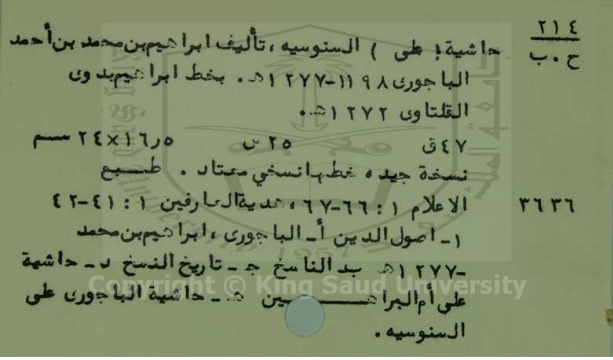 ٢١٤
ح . ب
حاشية ( على ) السنوسيه ، تأليف ابراهيم بن محمد بن أحمد
الباجورى ١١٩٨-١٢٧٧هـ . بخط ابراهيم بدوى
القلتاوى ١٢٧٢هـ .
٤٧ ق ٢٥ س ٢٤×١٦٫٥ سم
نسخة جيده ، خطها نسخي معتاد . طبع
٣٦٣٦ الاعلام ١ : ٦٦-٦٧ ، هدية العارفين ١ : ٤١-٤٢
١- اصول الدين أ- الباجورى ، ابراهيم بن محمد
-١٢٧٧هـ ب- الناسخ ج- تاريخ النسخ د- حاشية
على أم البراهين هـ- حاشية الباجورى على
السنوسيه .
Copyright © King Saud University